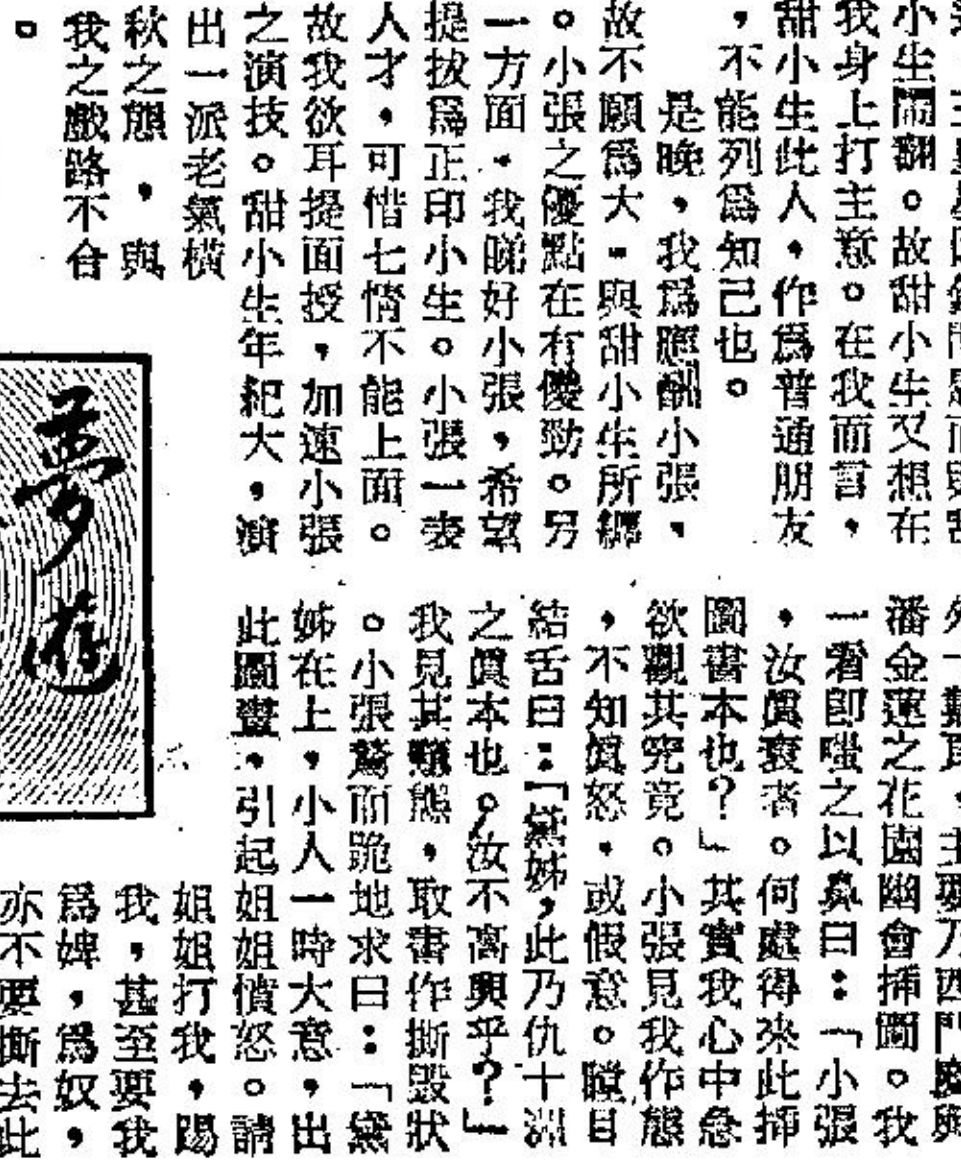 小生鬧翻。故甜小生又想在
我身上打主意。在我而言，
甜小生此人，作爲普通朋友
，不能列爲知己也。
是晚，我爲應酬小張，
故不願爲大，與甜小生所綁
。小張之優點在有傻勁。另
一方面，我睇好小張，希望
提拔爲正印小生。小張一表
人才，可惜七情不能上面。
故我欲耳提面授，加速小張
之演技。甜小生年紀大，演
出一派老氣橫
秋之態，與
我之戲路不合
。
潘金蓮之花園幽會插圖。我
一看即嗤之以鼻曰：「小張
，汝眞衰者。何處得來此插
圖書本也？」其實我心中急
欲觀其究竟。小張見我作態
，不知眞怒，或假意。瞠目
結舌曰：「黛姊，此乃仇十洲
之眞本也。汝不高興乎？」
我見其態，取書作撕毀狀
。小張驚而跪地求曰：「黛
姊在上，小人一時大意，出
此圖畫，引起姐姐憤怒。請
姐姐打我，賜
我，甚至要我
爲婢，爲奴，
亦不要撕去此
夢遊